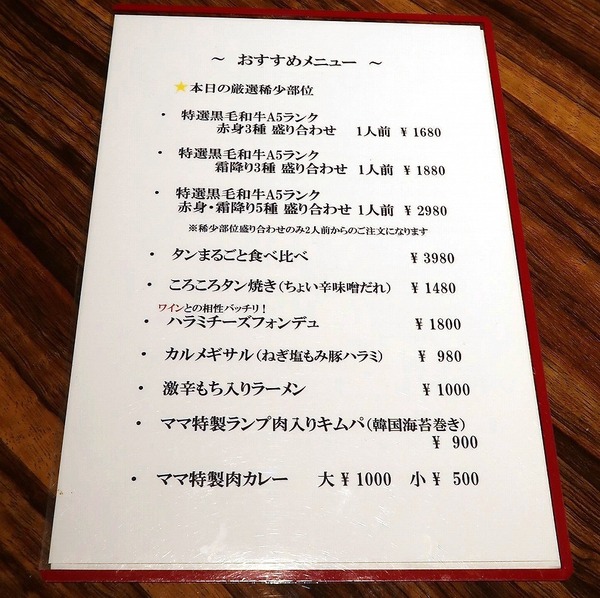 ～ おすすめメニュー ～
★本日の厳選稀少部位
・ 特選黒毛和牛A5ランク
赤身3種 盛り合わせ 1人前 ¥1680
・ 特選黒毛和牛A5ランク
霜降り3種 盛り合わせ 1人前 ¥1880
・ 特選黒毛和牛A5ランク
赤身・霜降り5種 盛り合わせ 1人前 ¥2980
※稀少部位盛り合わせのみ2人前からのご注文になります
・ タンまるごと食べ比べ ¥3980
・ ころころタン焼き(ちょい辛味噌だれ) ¥1480
ワインとの相性バッチリ!
・ ハラミチーズフォンデュ ¥1800
・ カルメギサル(ねぎ塩もみ豚ハラミ) ¥ 980
・ 激辛もち入りラーメン ¥1000
・ ママ特製ランプ肉入りキムパ(韓国海苔巻き)
¥ 900
・ ママ特製肉カレー 大¥1000 小¥ 500